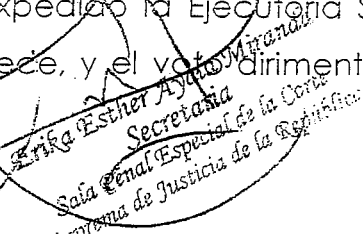 expedido la Ejecutoria S
ece, y el voto dirimente
Erika Esther Ayala Miranda
Secretaria
Sala Penal Especial de la Corte
Suprema de Justicia de la República